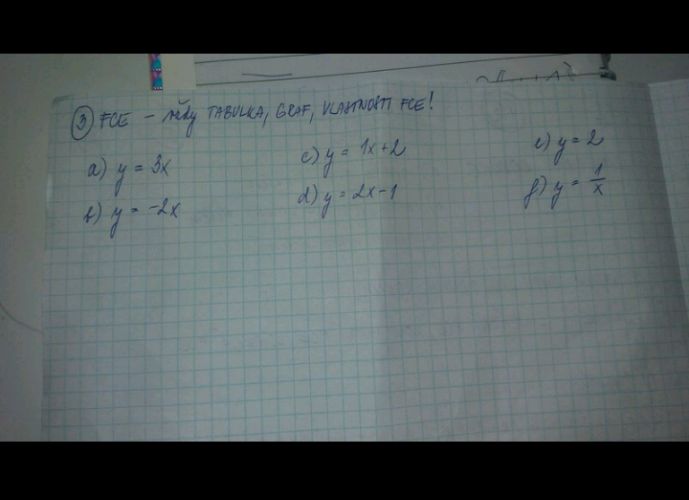 ③ FCE – vždy TABULKA, GRAF, VLASTNOSTI FCE!
a) y = 3x
b) y = -2x
c) y = 1x+2
d) y = 2x-1
e) y = 2
f) y = 1/x